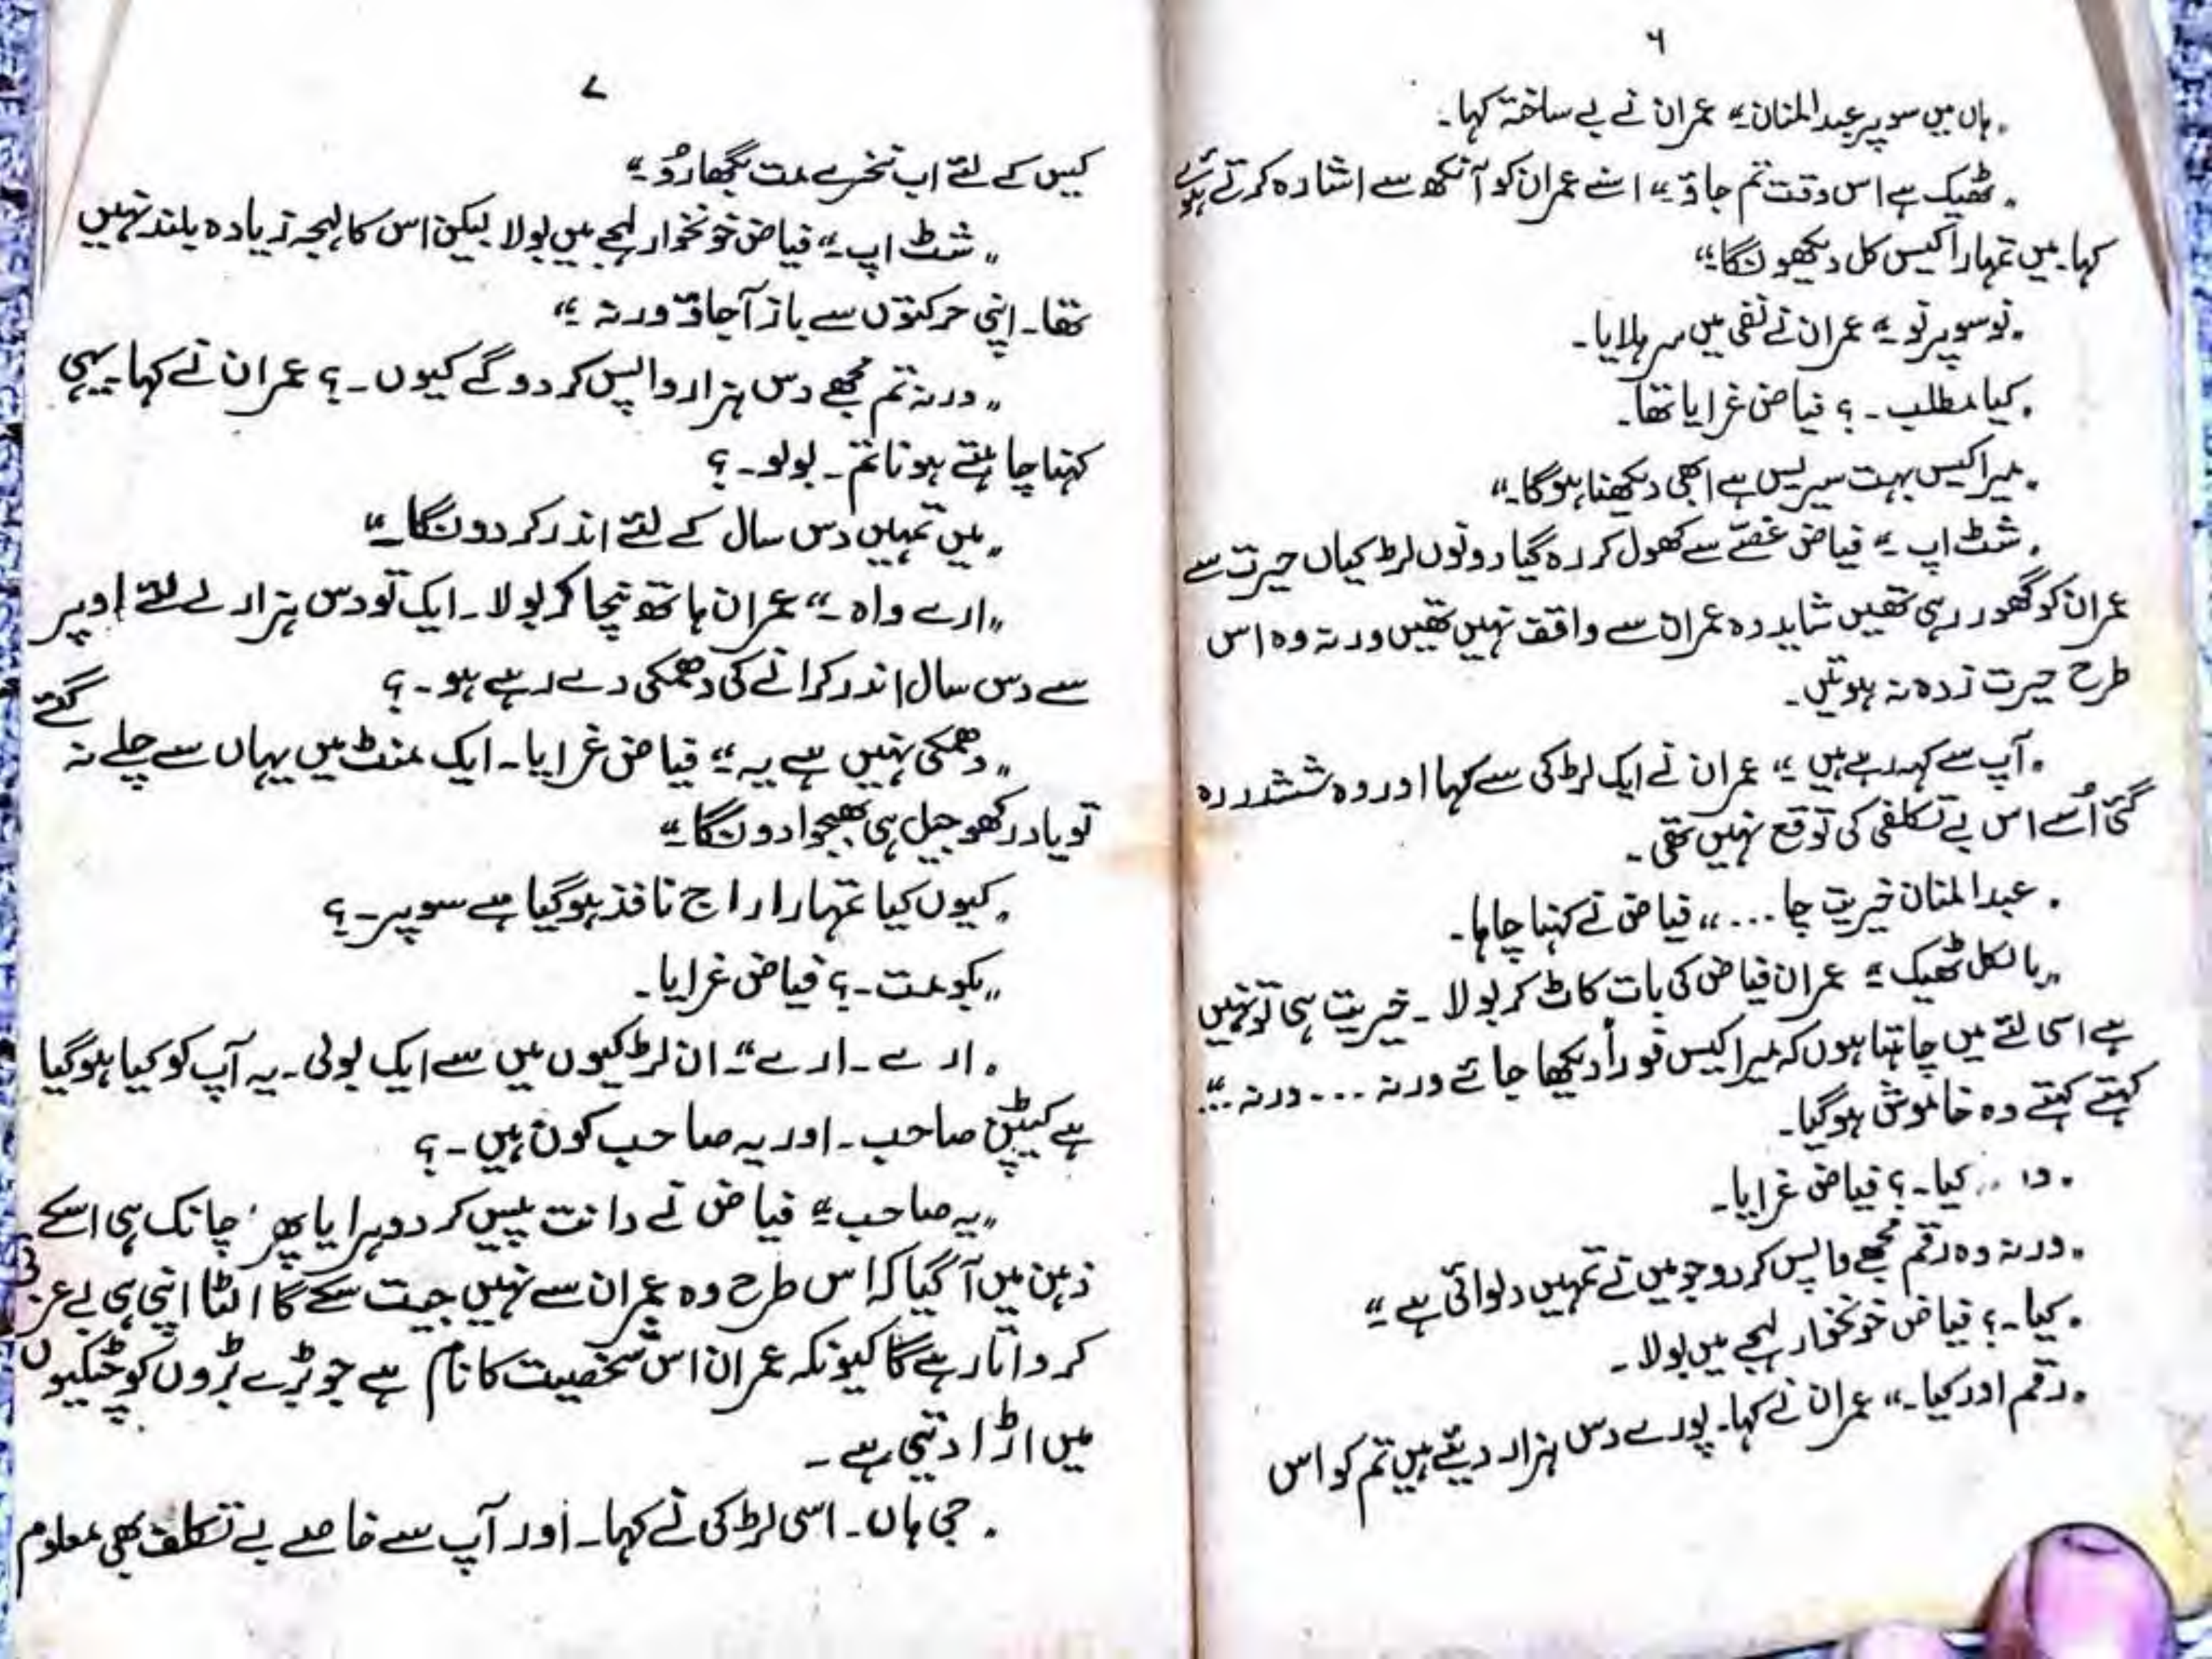 ۶
„ہاں میں سوپر عبدالمنان“ عمران نے بے ساختہ کہا۔
„ٹھیک ہے اس وقت تم جاؤ“ اسنے عمران کو آنکھ سے اشارہ کرتے ہوئے
کہا۔ میں تمہارا کیس کل دیکھونگا“
„نو سوپر نو“ عمران نے نفی میں سر ہلایا۔
„کیا مطلب۔؟ فیاض غرایا تھا۔
„میرا کیس بہت سیریس ہے ابھی دیکھنا ہوگا۔“
„شٹ اپ“ فیاض غصّے سے کھول کر رہ گیا دونوں لڑکیاں حیرت سے
عمران کو گھور رہی تھیں شاید وہ عمران سے واقف نہیں تھیں ورنہ وہ اس
طرح حیرت زدہ نہ ہوتیں۔
„آپ سے کہہ رہے ہیں“ عمران نے ایک لڑکی سے کہا اور وہ ششدر رہ
گئی اُسے اس بے تکلفی کی توقع نہیں تھی۔
„عبدالمنان خیریت چا ...“ فیاض نے کہنا چاہا۔
„بالکل ٹھیک“ عمران فیاض کی بات کاٹ کر بولا۔ خیریت ہی تو نہیں
ہے اسی لئے میں چاہتا ہوں کہ میرا کیس فوراً دیکھا جائے ورنہ ... ورنہ ..“
کہتے کہتے وہ خاموش ہوگیا۔
„ور .. کیا۔؟ فیاض غرایا۔
„ورنہ وہ رقم مجھے واپس کر دو جو میں نے تمہیں دلوائی ہے“
„کیا۔؟ فیاض خونخوار لہجے میں بولا۔
„رقم اور کیا۔“ عمران نے کہا۔ پورے دس ہزار دیئے ہیں تم کو اس
۷
کیس کے لئے اب نخرے مت بگھارُو“
„شٹ اپ“ فیاض خونخوار لہجے میں بولا لیکن اس کا لہجہ زیادہ بلند نہیں
تھا۔ اپنی حرکتوں سے باز آجاؤ ورنہ“
„ورنہ تم مجھے دس ہزار واپس کر دو گے کیوں۔؟ عمران نے کہا۔ یہی
کہنا چاہتے ہو نا تم۔ بولو۔؟
„میں تمہیں دس سال کے لئے اندر کر دونگا۔“
„ارے واہ۔“ عمران ہاتھ نچا کر بولا۔ ایک تو دس ہزار لے لئے اوپر
سے دس سال اندر کرانے کی دھمکی دے رہے ہو۔؟
„دھمکی نہیں ہے یہ“ فیاض غرایا۔ ایک منٹ میں یہاں سے چلے نہ گئے
تو یاد رکھو جیل ہی بھیجوا دونگا“
„کیوں کیا تمہارا راج نافذ ہوگیا ہے سوپر۔؟
„بکو مت۔؟ فیاض غرایا۔
„ارے۔ ارے“۔ ان لڑکیوں میں سے ایک بولی۔ یہ آپ کو کیا ہوگیا
ہے کیپٹن صاحب۔ اور یہ صاحب کون ہیں۔؟
„یہ صاحب“ فیاض نے دانت پیس کر دوہرایا پھر اچانک ہی اسکے
ذہن میں آگیا کہ اس طرح وہ عمران سے نہیں جیت سکے گا الٹا اپنی ہی بے عزتی
کرواتا رہے گا کیونکہ عمران اس شخصیت کا نام ہے جو بڑے بڑوں کو چٹکیوں
میں اڑا دیتی ہے۔
„جی ہاں۔ اسی لڑکی نے کہا۔ اور آپ سے خاصے بے تکلف بھی معلوم